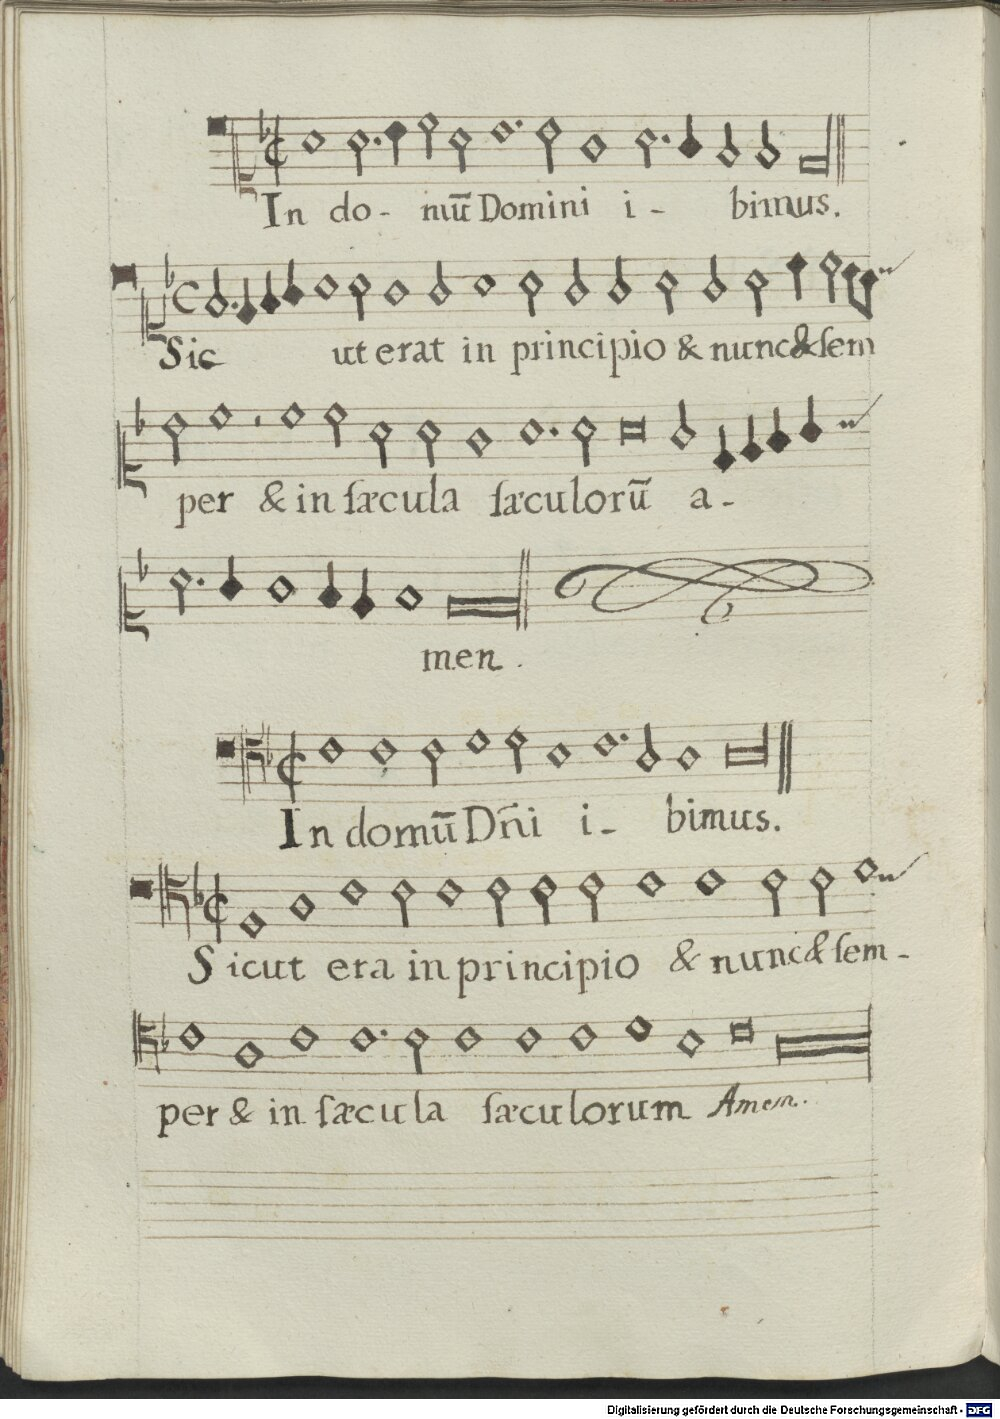 In do- mū Domini i- bimus.
Sic ut erat in principio & nunc & ſem
per & in ſæcula ſæculorū a-
men.
In domū Dn̄i i- bimus.
Sicut era in principio & nunc & ſem-
per & in ſæcula ſæculorum Amen.
Digitalisierung gefördert durch die Deutsche Forschungsgemeinschaft - DFG